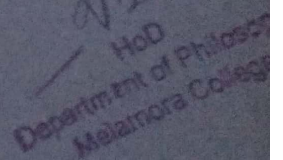 HoD
Department of Philoso
Melamora College